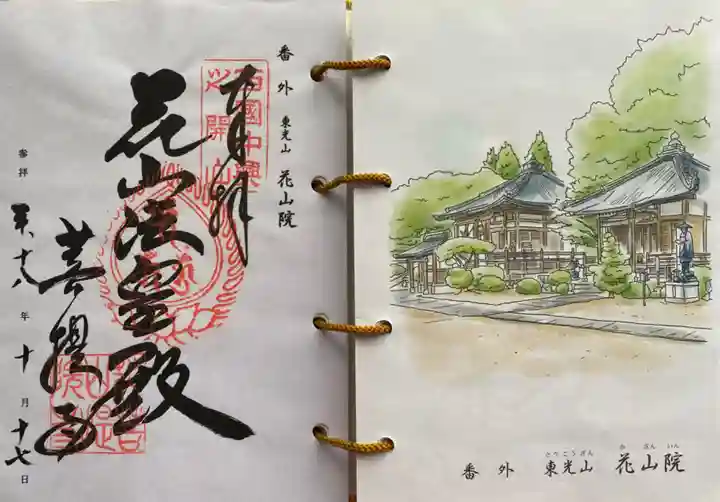 番外 東光山 花山院
奉拝
西國中興
之開山
花山法皇殿
菩提寺
参拝 平成十八年十月十七日
番外 東光山 花山院
とうこうざん か ざん いん